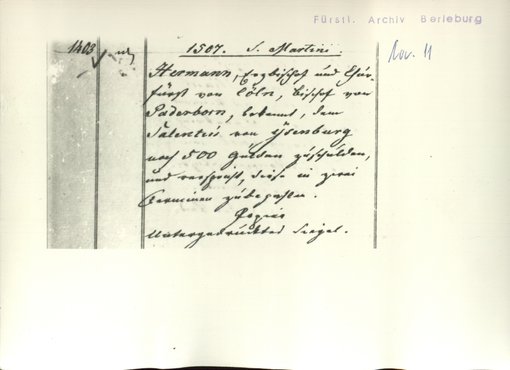 Fürstl. Archiv Berleburg
1403
1507. S. Martini.
Nov. 11
Hermann, Erzbischof und Chur-
fürst von Cöln, Bischof von
Paderborn, bekennt, dem
von Ysenburg
noch 500 Gulden zuschulden,
und verspricht, diese in zwei
Terminen zubezahlen.
Papier
Untergedrücktes Siegel.